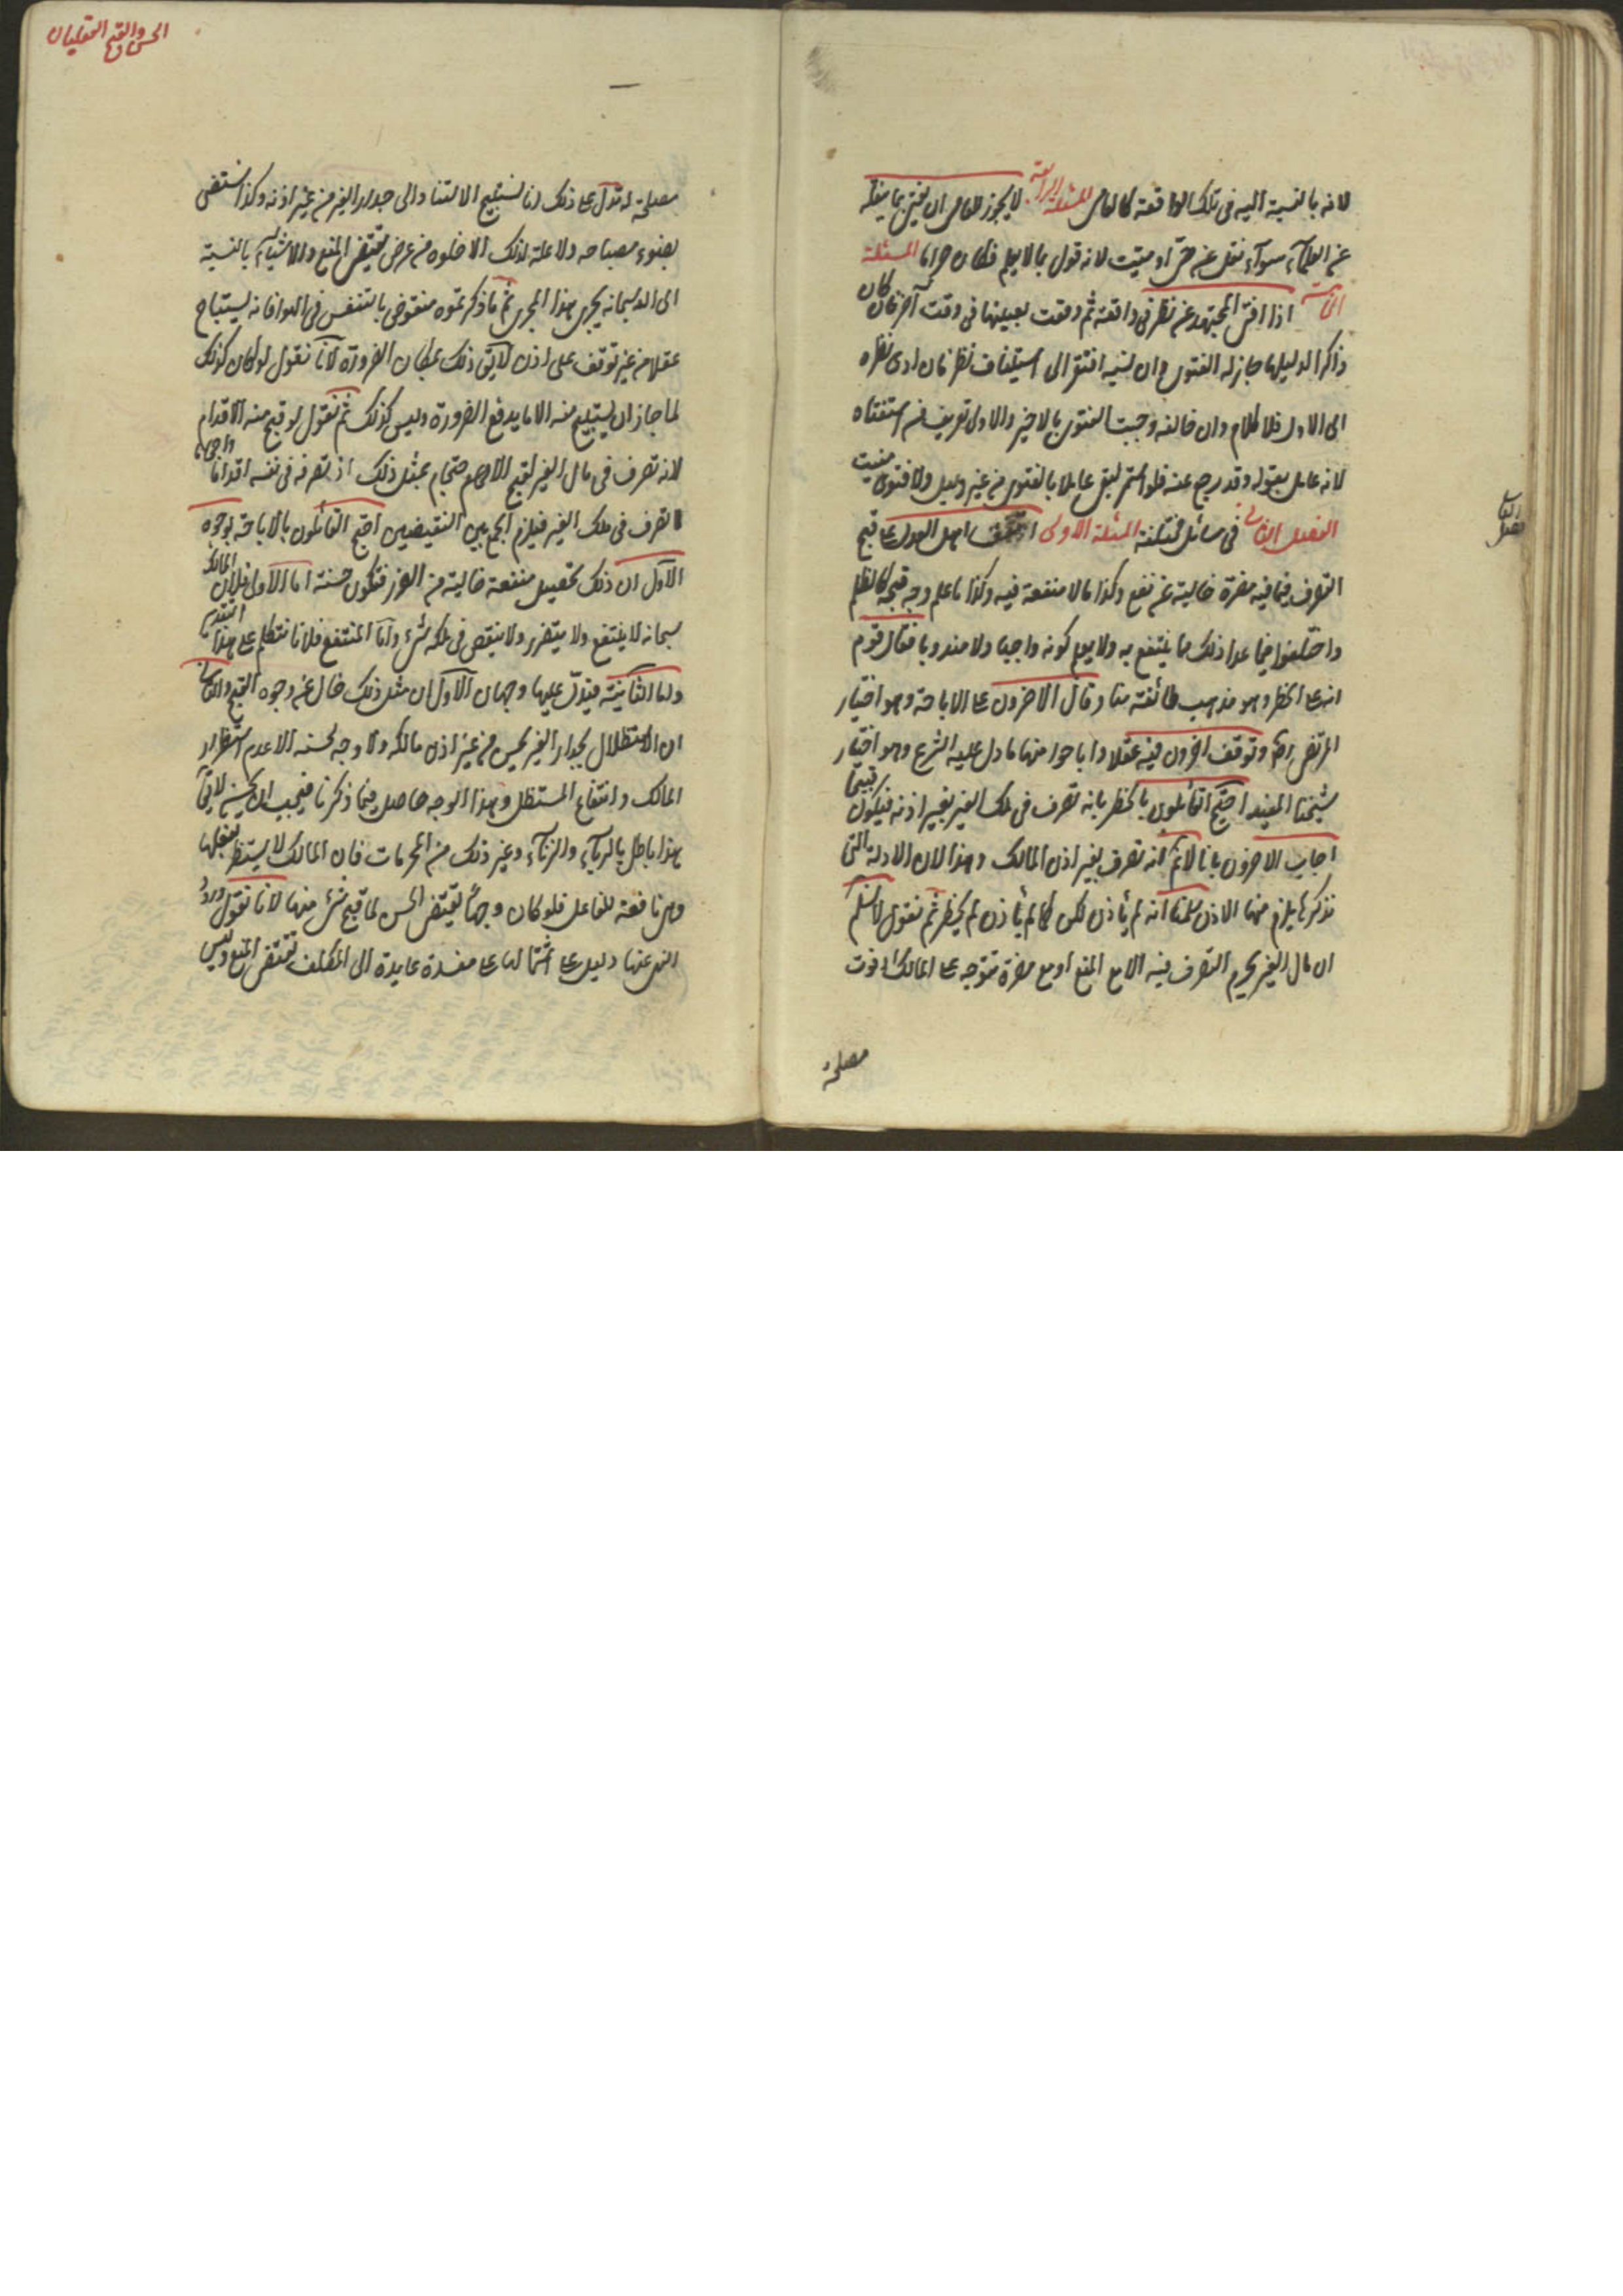 لانه بالنسبة اليه فى تلك الواقعة كالعامى المسئلة الرابعة لا يجوز للعامى ان يفتى بما ينقله
عن العلماء سواء نقل عن حى او ميت لانه قول بما لا يعلم فكان حراما المسئلة
الخامسة اذا افتى المجتهد عن نظر فى واقعة ثم وقعت بعينها فى وقت آخر فان كان
ذاكرا لدليلها جاز له الفتوى وان نسيه افتقر الى استيناف نظر فان ادى نظره
الى الاول فلا كلام وان خالفه وجبت الفتوى بالاخير والاولى تعريف من استفتاه
لانه عامل بقوله وقد رجع عنه فلو استمر لبقى عاملا بالفتوى من غير دليل ولا فتوى مفت
الفصل الثانى فى مسائل مختلفة المسئلة الاولى اتفق اهل العدل على قبح
التصرف فيما فيه مضرة خالية عن نفع وكذا ما لا منفعة فيه وكذا ما علم وجه قبحه كالظلم
واختلفوا فيما عدا ذلك مما ينتفع به ولا يعلم كونه واجبا ولا مندوبا فقال قوم
انه على الحظر وهو مذهب طائفة منا وقال الاخرون على الاباحة وهو اختيار
المرتضى ره وتوقف اخرون فيه عقلا واباحوا منها ما دل عليه الشرع وهو اختيار
شيخنا المفيد احتج القائلون بالحظر بانه تصرف فى ملك الغير بغير اذنه فيكون قبيحا
اجاب الاخرون بانا لا نم انه تصرف بغير اذن المالك وهذا لان الادلة التى
نذكرها يلزم منها الاذن سلمنا انه لم يأذن لكن كما لم يأذن لم يحظر ثم نقول لا نسلم
ان مال الغير يحرم التصرف فيه الا مع المنع او مع مضرة تتوجه على المالك او فوت
مصلحة
الحسن والقبح العقليان
مصلحة له تدل على ذلك انا نستبيح الاستناد الى جدار الغير من غير اذنه وكذا نستضى
بضوء مصباحه ولا علة لذلك الا خلوه من عرض يقتضى المنع والاشياء بالنسبة
الى الله سبحانه يجرى هذا المجرى ثم ما ذكرتموه منقوض بالتنفس فى الهوا فانه يستباح
عقلا من غير توقف على اذن لا يق ذلك بمكان الضرورة لانا نقول لو كان كذلك
لما جاز ان يستبيح منه الا ما يدفع الضرورة وليس كذلك ثم نقول لو قبح منه الاقدام
لانه تصرف فى مال الغير لقبح الاحجام بمثل ذلك اذ تصرفه فى نفسه اقداما واحجاما
تصرف فى ملك الغير فيلزم الجمع بين النقيضين احتج القائلون بالاباحة بوجوه
الاول ان ذلك تحصيل منفعة خالية من الضرر فتكون حسنة اما الاولى فلان المالك
سبحانه لا ينتفع ولا يتضرر ولا ينقص فى ملكه شىء واما المنتفع فلانا نتكلم على هذا التقدير
واما الثانية فيدل عليها وجهان الاول ان مثل ذلك خال عن وجوه القبح والثانى
ان الاستظلال بجدار الغير يحسن من غير اذن مالكه ولا وجه لحسنه الا عدم استضرار
المالك وانتفاع المستظل وهذا الوجه حاصل فيما ذكرنا فيجب ان يحسن لا يق
هذا باطل بالرياء والزناء وغير ذلك من المحرمات فان المالك لا يستضر بفعلها
وهى نافعة للفاعل فلو كان وجها يقتضى الحسن لما قبح شىء منها لانا نقول ورود
النهى عنها دليل على اشتمالها على مفسدة عايدة الى المكلف تقتضى المنع وليس